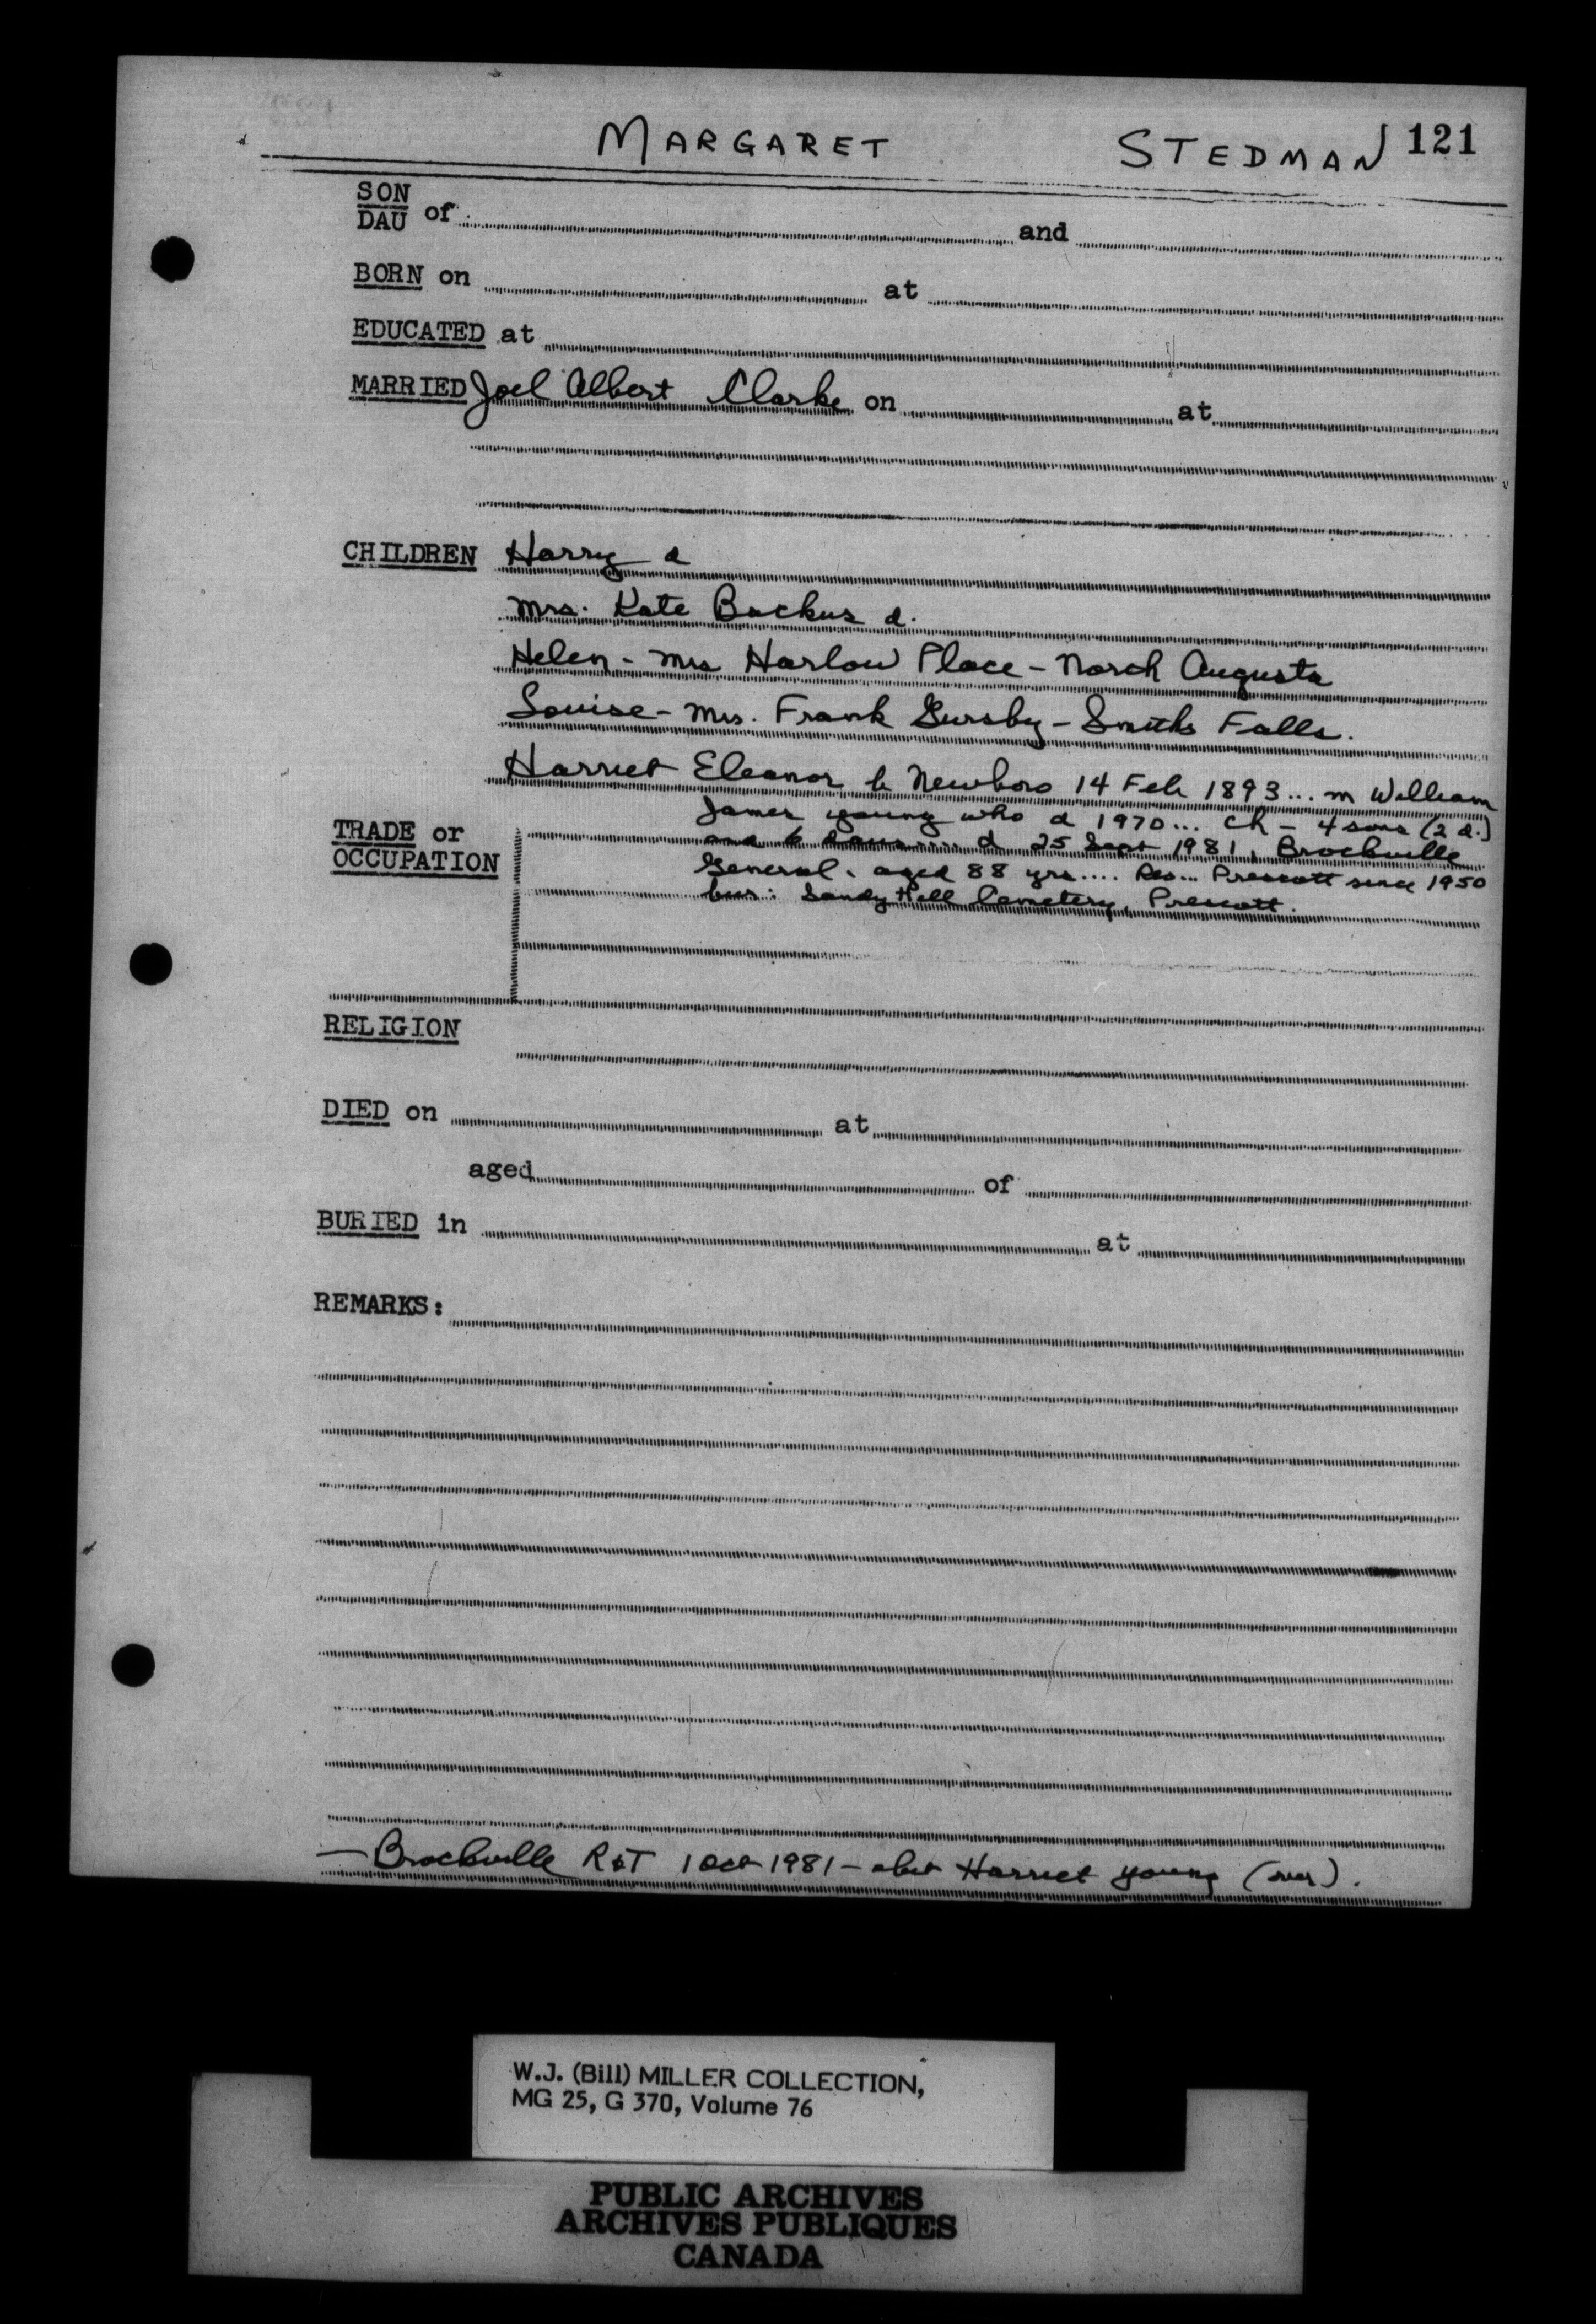 MARGARET STEDMAN 121
SON
DAU of and
BORN on at
EDUCATED at
MARRIED Joel Albert Clarke on at
CHILDREN Harry d
Mrs. Kate Backus d.
Helen - Mrs Harlow Place - North Augusta
Louise - Mrs. Frank Gursby - Smiths Falls.
Harriet Eleanor b Newboro 14 Feb 1893... m William
James Young who d 1970... ch - 4 sons (2 d.)
TRADE or
OCCUPATION
and 6 daus..... d 25 Sept 1981, Brockville
General. aged 88 yrs.... Res... Prescott since 1950
bur: Sandy Hill Cemetery, Prescott.
RELIGION
DIED on at
aged of
BURIED in at
REMARKS:
— Brockville R&T 1 Oct 1981 - obit Harriet Young (over).
W.J. (Bill) MILLER COLLECTION,
MG 25, G 370, Volume 76
PUBLIC ARCHIVES
ARCHIVES PUBLIQUES
CANADA